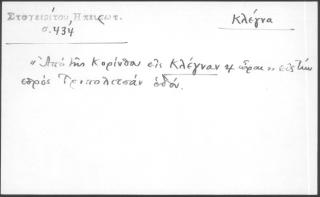 Στογειρίτου Ηπειρωτ.
σ. 434
Κλέγνα
"Ἀπὸ τῆς Κορίνθου εἰς Κλέγναν ὧραι εἰς τὴν
πρὸς Τριπολιτσὰν ὁδόν.